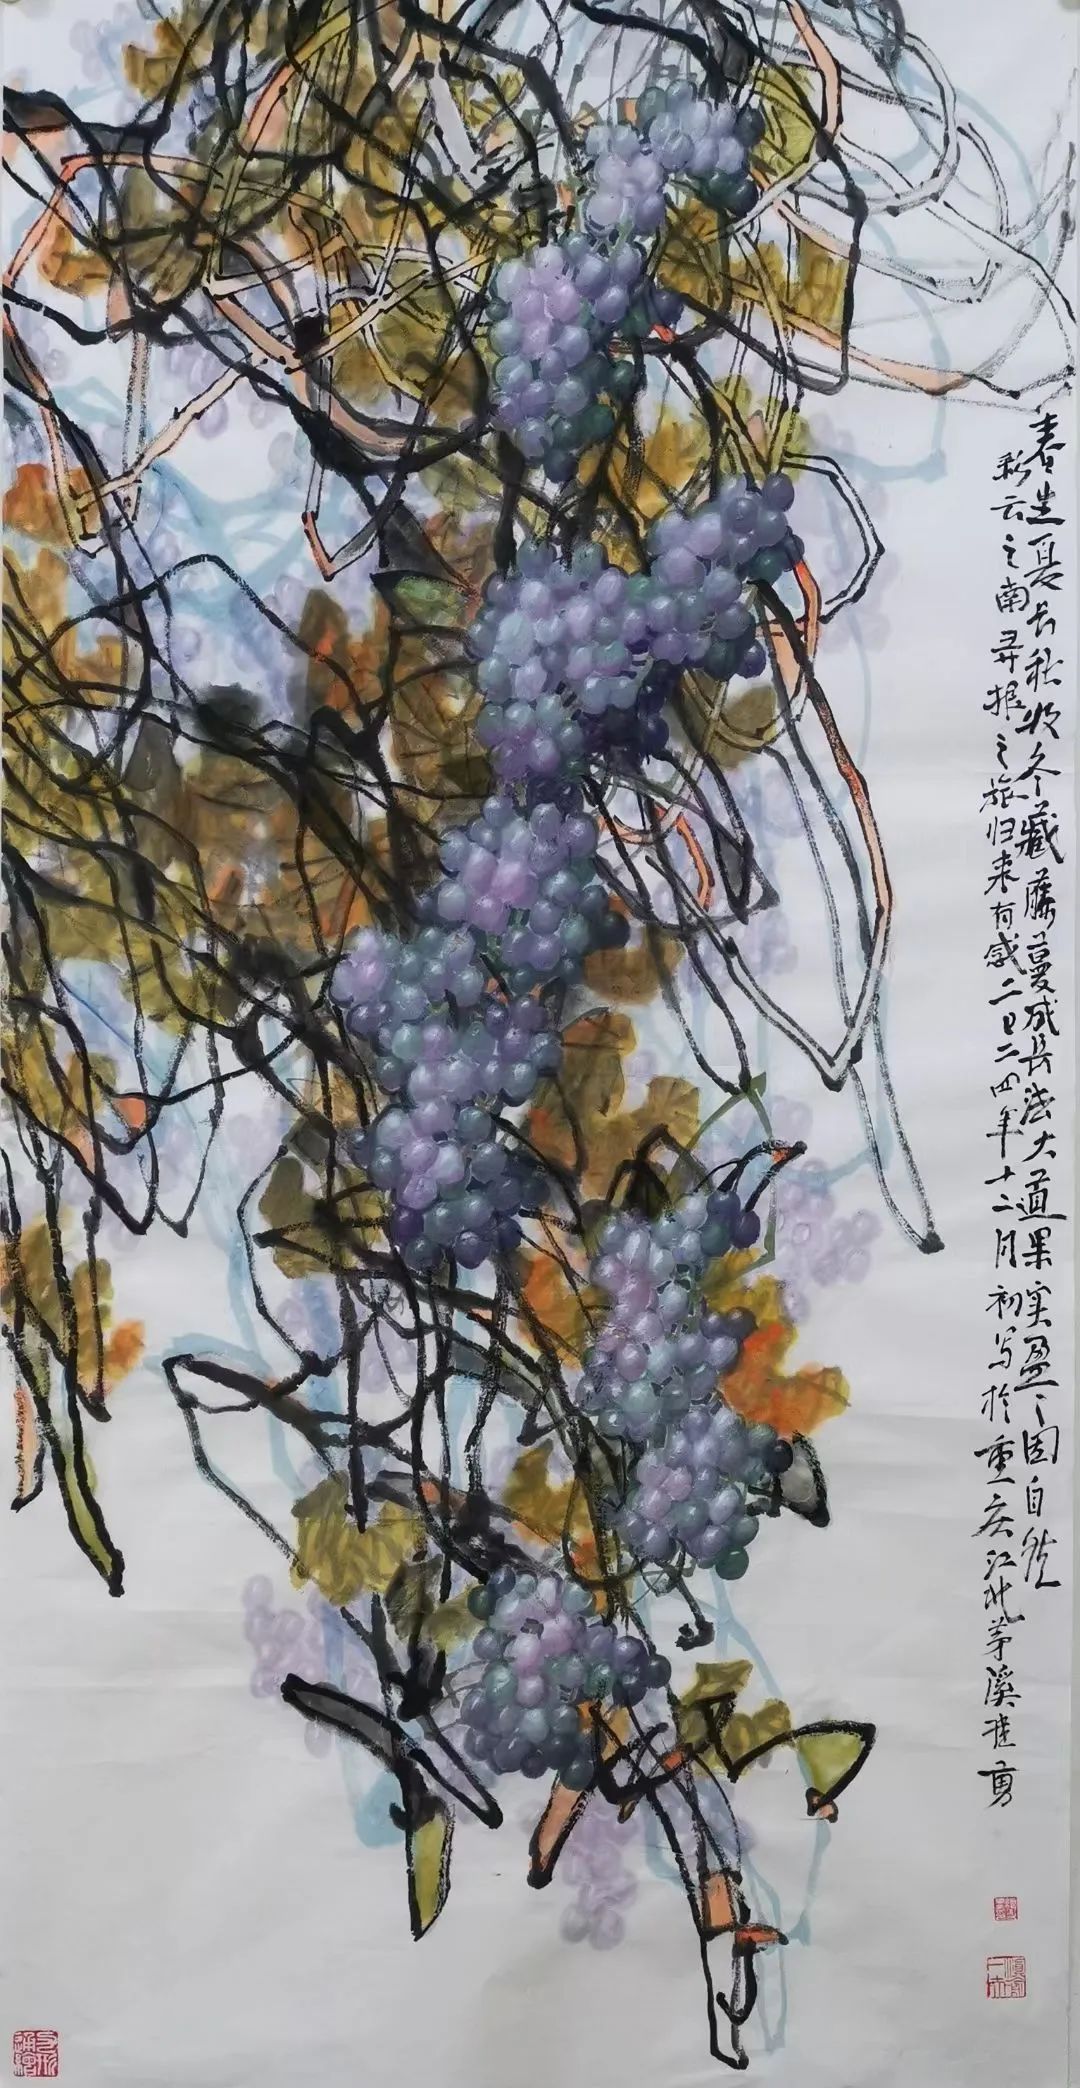 春生夏长秋收冬藏藤蔓成长法大道果实盈々固自然
彩云之南寻根之旅归来有感二〇二四年十二月初写於重庆江北茅溪建勇